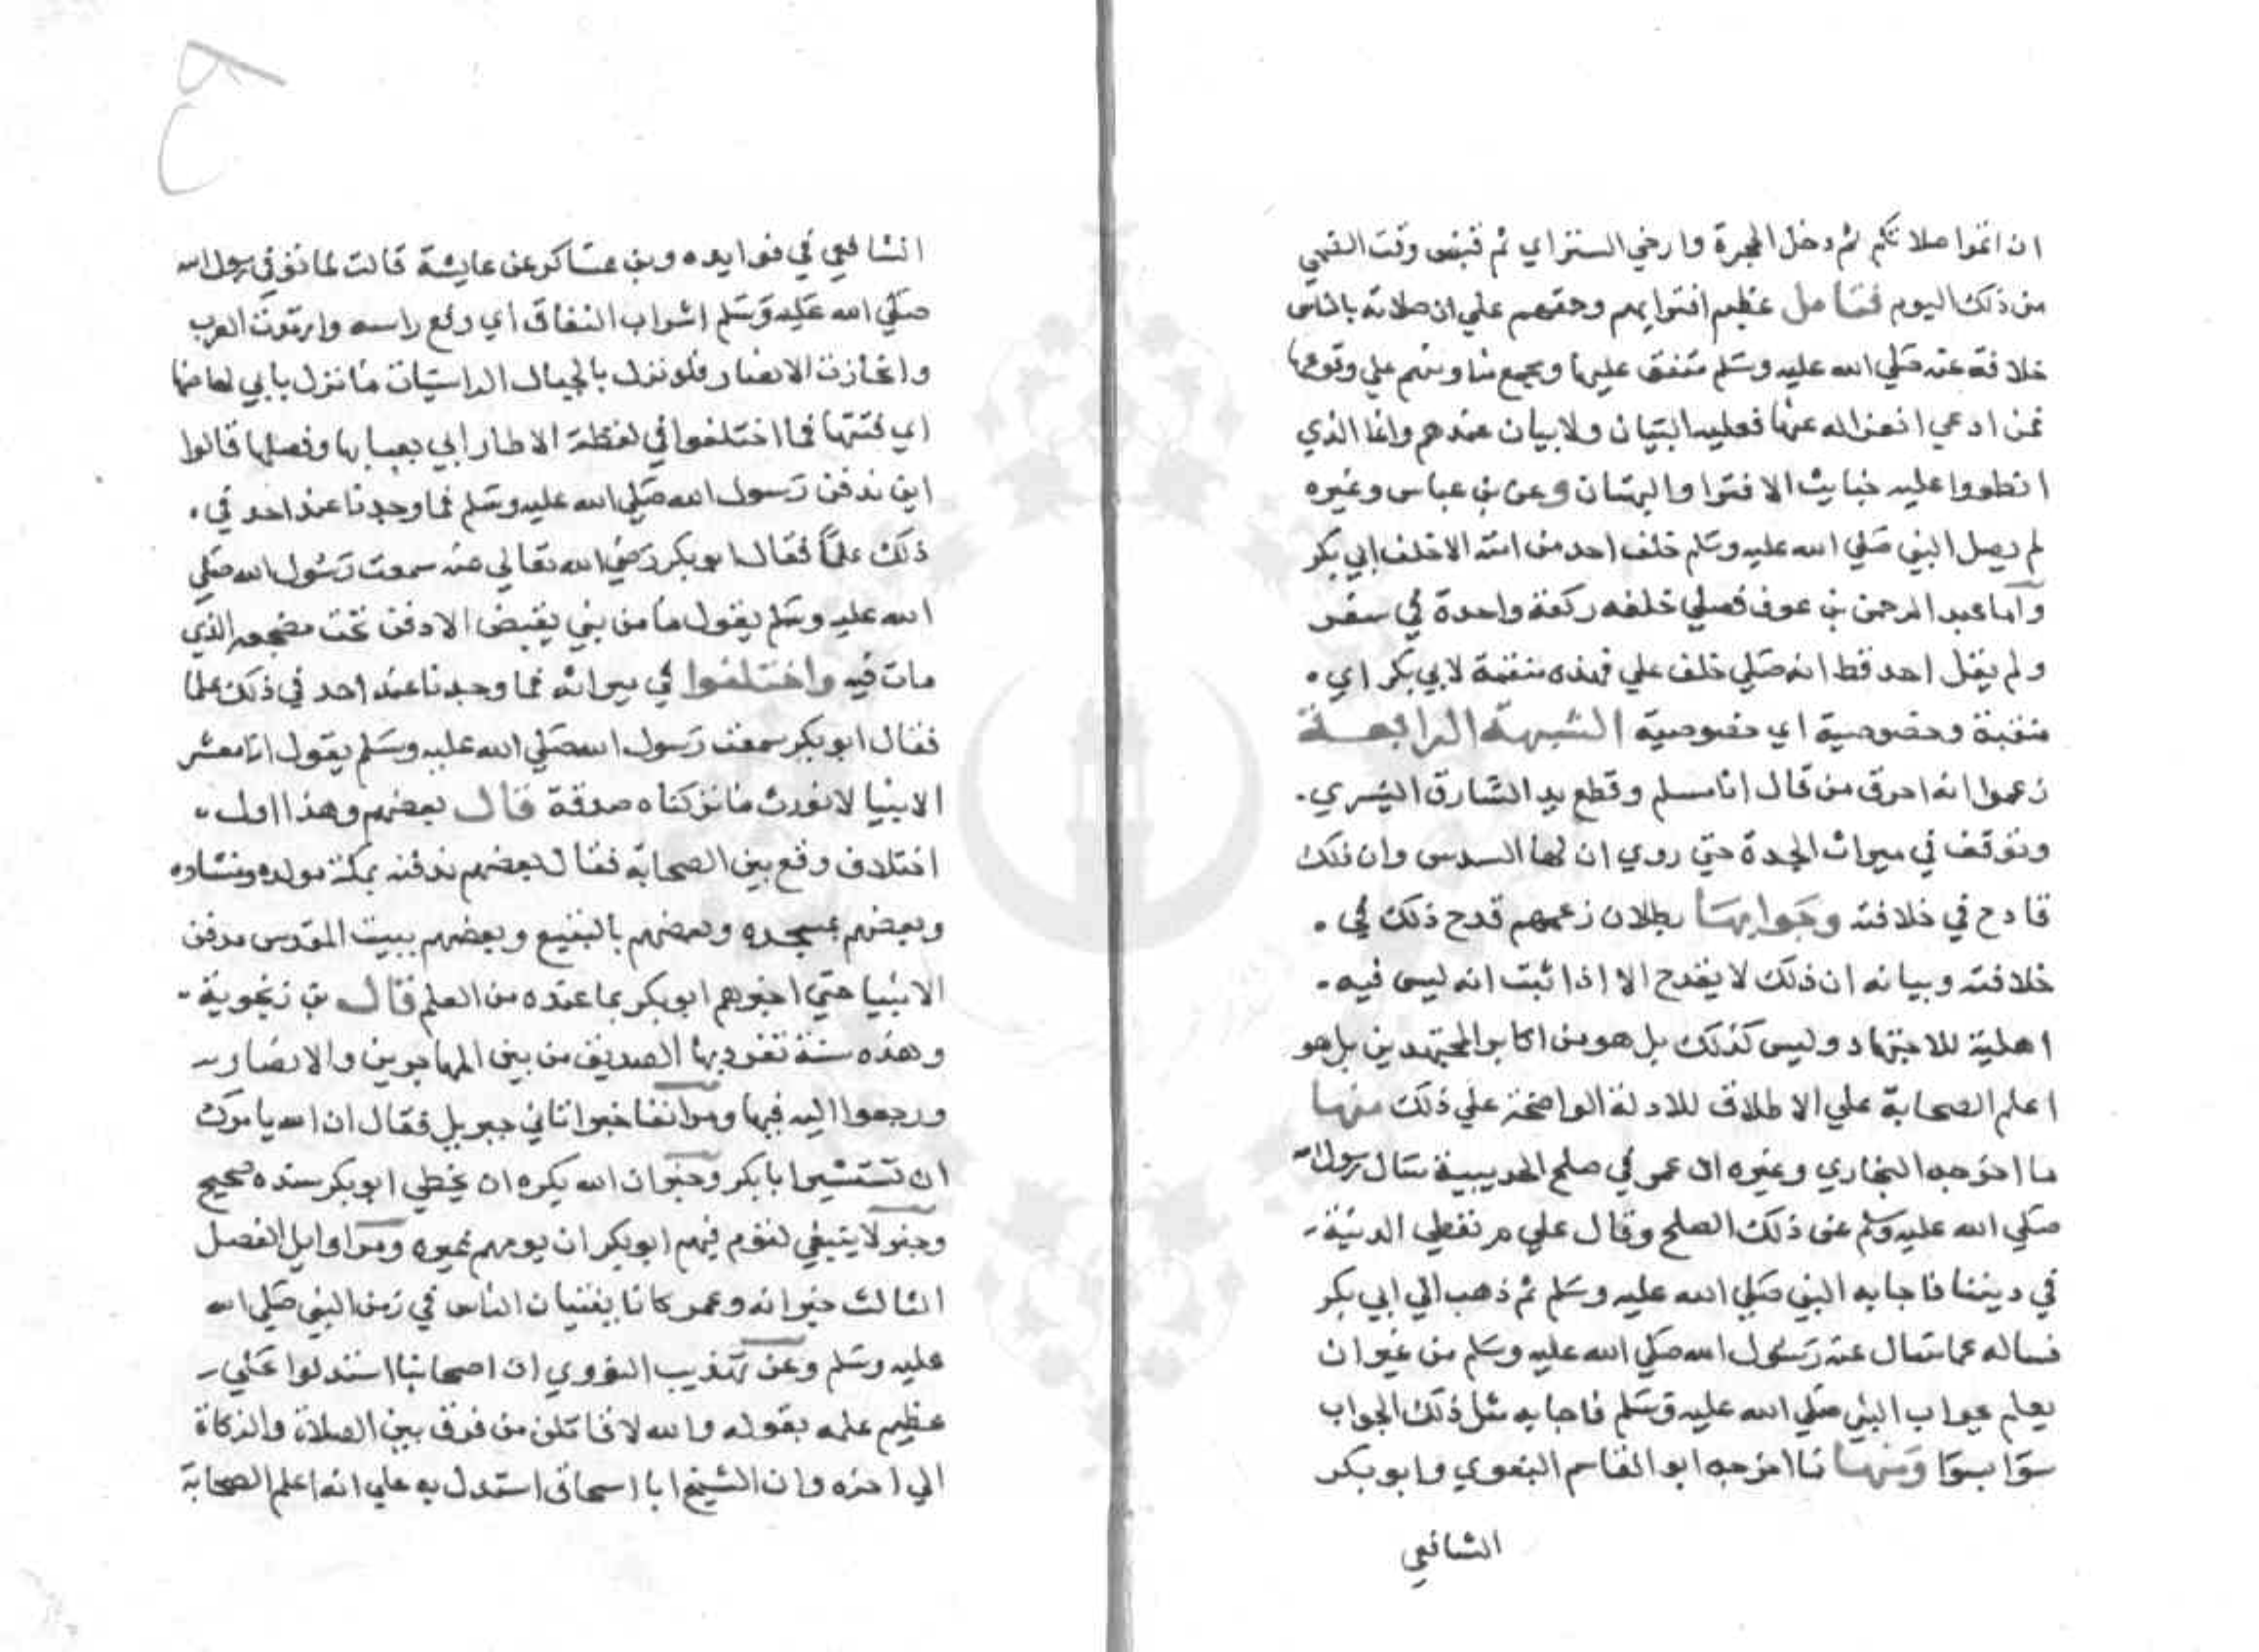 ان اتموا صلاتكم ثم دخل الحجرة وارخي الستر اي ثم قبض وقت الضحي
من ذلك اليوم فتأمل عظيم افترايهم وحمقهم علي ان صلاته بالناس
خلافة عنه صلي الله عليه وسلم متفق عليها ومجمع منا ومنهم علي وقوعها
فمن ادعي انعزاله عنها فعليه البيان ولا بيان عندهم وانما الذي
انطووا عليه خبايث الافترا والبهتان وعن بن عباس وغيره
لم يصل النبي صلي الله عليه وسلم خلف احد من امته الا خلف ابي بكر
وأما عبد الرحمن بن عوف فصلي خلفه ركعة واحدة في سفر
ولم يقل احد قط انه صلي خلف علي فهذه منقبة لابي بكر اي
منقبة وخصوصية اي خصوصية الشبهة الرابعة
زعموا انه احرق من قال انا مسلم وقطع يد السارق اليسري
وتوقف في ميراث الجدة حتي روي ان لها السدس وان ذلك
قادح في خلافته وجوابها بطلان زعمهم قدح ذلك في
خلافته وبيانه ان ذلك لا يقدح الا اذا ثبت انه ليس فيه
اهلية للاجتهاد وليس كذلك بل هو من اكابر المجتهدين بل هو
اعلم الصحابة علي الاطلاق للادلة الواضحة علي ذلك منها
ما اخرجه البخاري وغيره ان عمر في صلح الحديبية سال رسول الله
صلي الله عليه وسلم عن ذلك الصلح وقال علي م نعطي الدنية
في ديننا فاجابه النبي صلي الله عليه وسلم ثم ذهب الي ابي بكر
فساله عما سال عنه رسول الله صلي الله عليه وسلم من غير ان
يعلم بجواب النبي صلي الله عليه وسلم فاجابه مثل ذلك الجواب
سوا بسوا ومنها ما اخرجه ابو القاسم البغوي وابو بكر
الشافعي
الشافعي في فوايده وبن عساكر عن عايشة قالت لما توفي رسول الله
صلي الله عليه وسلم اشراب النفاق اي رفع راسه وارتدت العرب
وانحازت الانصار فلو نزل بالجبال الراسيات ما نزل بابي لهاضها
اي فتتها فما اختلفوا في لفظة الا طار ابي بعبابها وفصلها قالوا
اين ندفن رسول الله صلي الله عليه وسلم فما وجدنا عند احد في
ذلك علما فقال ابو بكر رضي الله تعالي عنه سمعت رسول الله صلي
الله عليه وسلم يقول ما من نبي يقبض الا دفن تحت مضجعه الذي
مات فيه واختلفوا في ميراثه فما وجدنا عند احد في ذلك علما
فقال ابو بكر سمعت رسول الله صلي الله عليه وسلم يقول انا معشر
الانبيا لا نورث ما تركناه صدقة قال بعضهم وهذا اول
اختلاف وقع بين الصحابة فقال بعضهم ندفنه بمكة مولده ومنشاوه
وبعضهم بمسجده وبعضهم بالبقيع وبعضهم ببيت المقدس مدفن
الانبيا حتي اخبرهم ابو بكر بما عنده من العلم قال بن زنجوية
وهذه سنة تفرد بها الصديق من بين المهاجرين والانصار
ورجعوا اليه فيها ومر انفا خبر اتاني جبريل فقال ان الله يامرك
ان تستشير ابا بكر وخبر ان الله يكره ان يخطي ابو بكر سنده صحيح
وخبر لا ينبغي لقوم فيهم ابو بكر ان يومهم غيره ومر اوايل الفصل
الثالث خبر انه وعمر كانا يفتيان الناس في زمن النبي صلي الله
عليه وسلم وعن تهذيب النووي ان اصحابنا استدلوا علي
عظيم علمه بقوله والله لاقاتلن من فرق بين الصلاة والزكاة
الي اخره وان الشيخ ابا اسحاق استدل به علي انه اعلم الصحابة